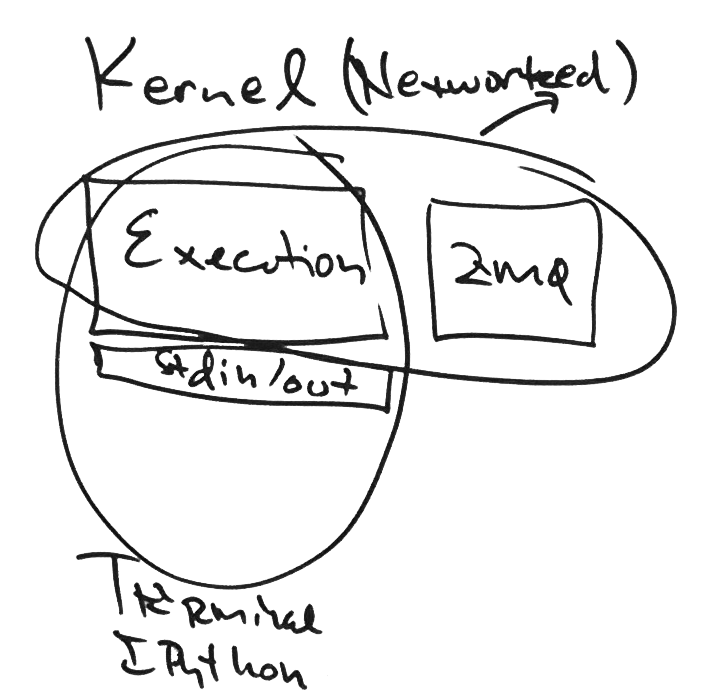 Kernel (Networked)
Execution
zmq
stdin/out
Terminal
IPython